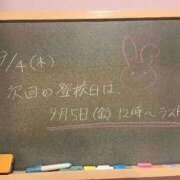 9/4(木)
次回の登校日は、
9月5日(金)12時〜ラスト